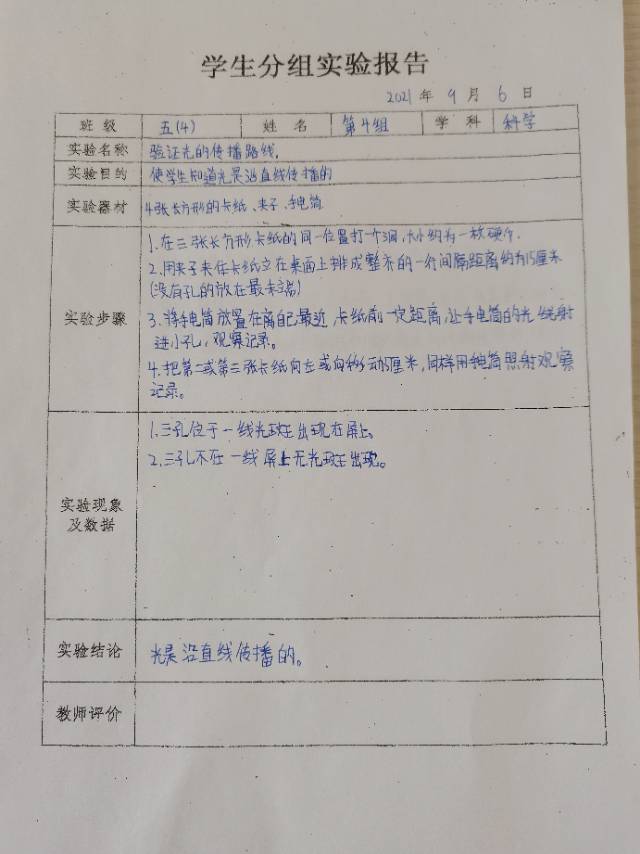 学生分组实验报告
2021 年 9 月 6 日
班 级 五(4) 姓 名 第4组 学 科 科学
实验名称 验证光的传播路线.
实验目的 使学生知道光是沿直线传播的
实验器材 4张长方形的卡纸、夹子、手电筒
1.在三张长方形卡纸的同一位置打一个洞,大小约为一枚硬币.
2.用夹子夹住卡纸立在桌面上排成整齐的一行间隔距离约为15厘米
(没有孔的放在最末端)
实验步骤
3.将手电筒放置在离自己最近 卡纸前一定距离,让手电筒的光线射
进小孔,观察记录。
4.把第二或第三张卡纸向左或向移动5厘米,同样用手电筒照射观察
记录。
1.三孔位于一线光斑出现在屏上。
2.三孔不在一线屏上无光斑出现。
实验现象
及数据
实验结论 光是沿直线传播的。
教师评价